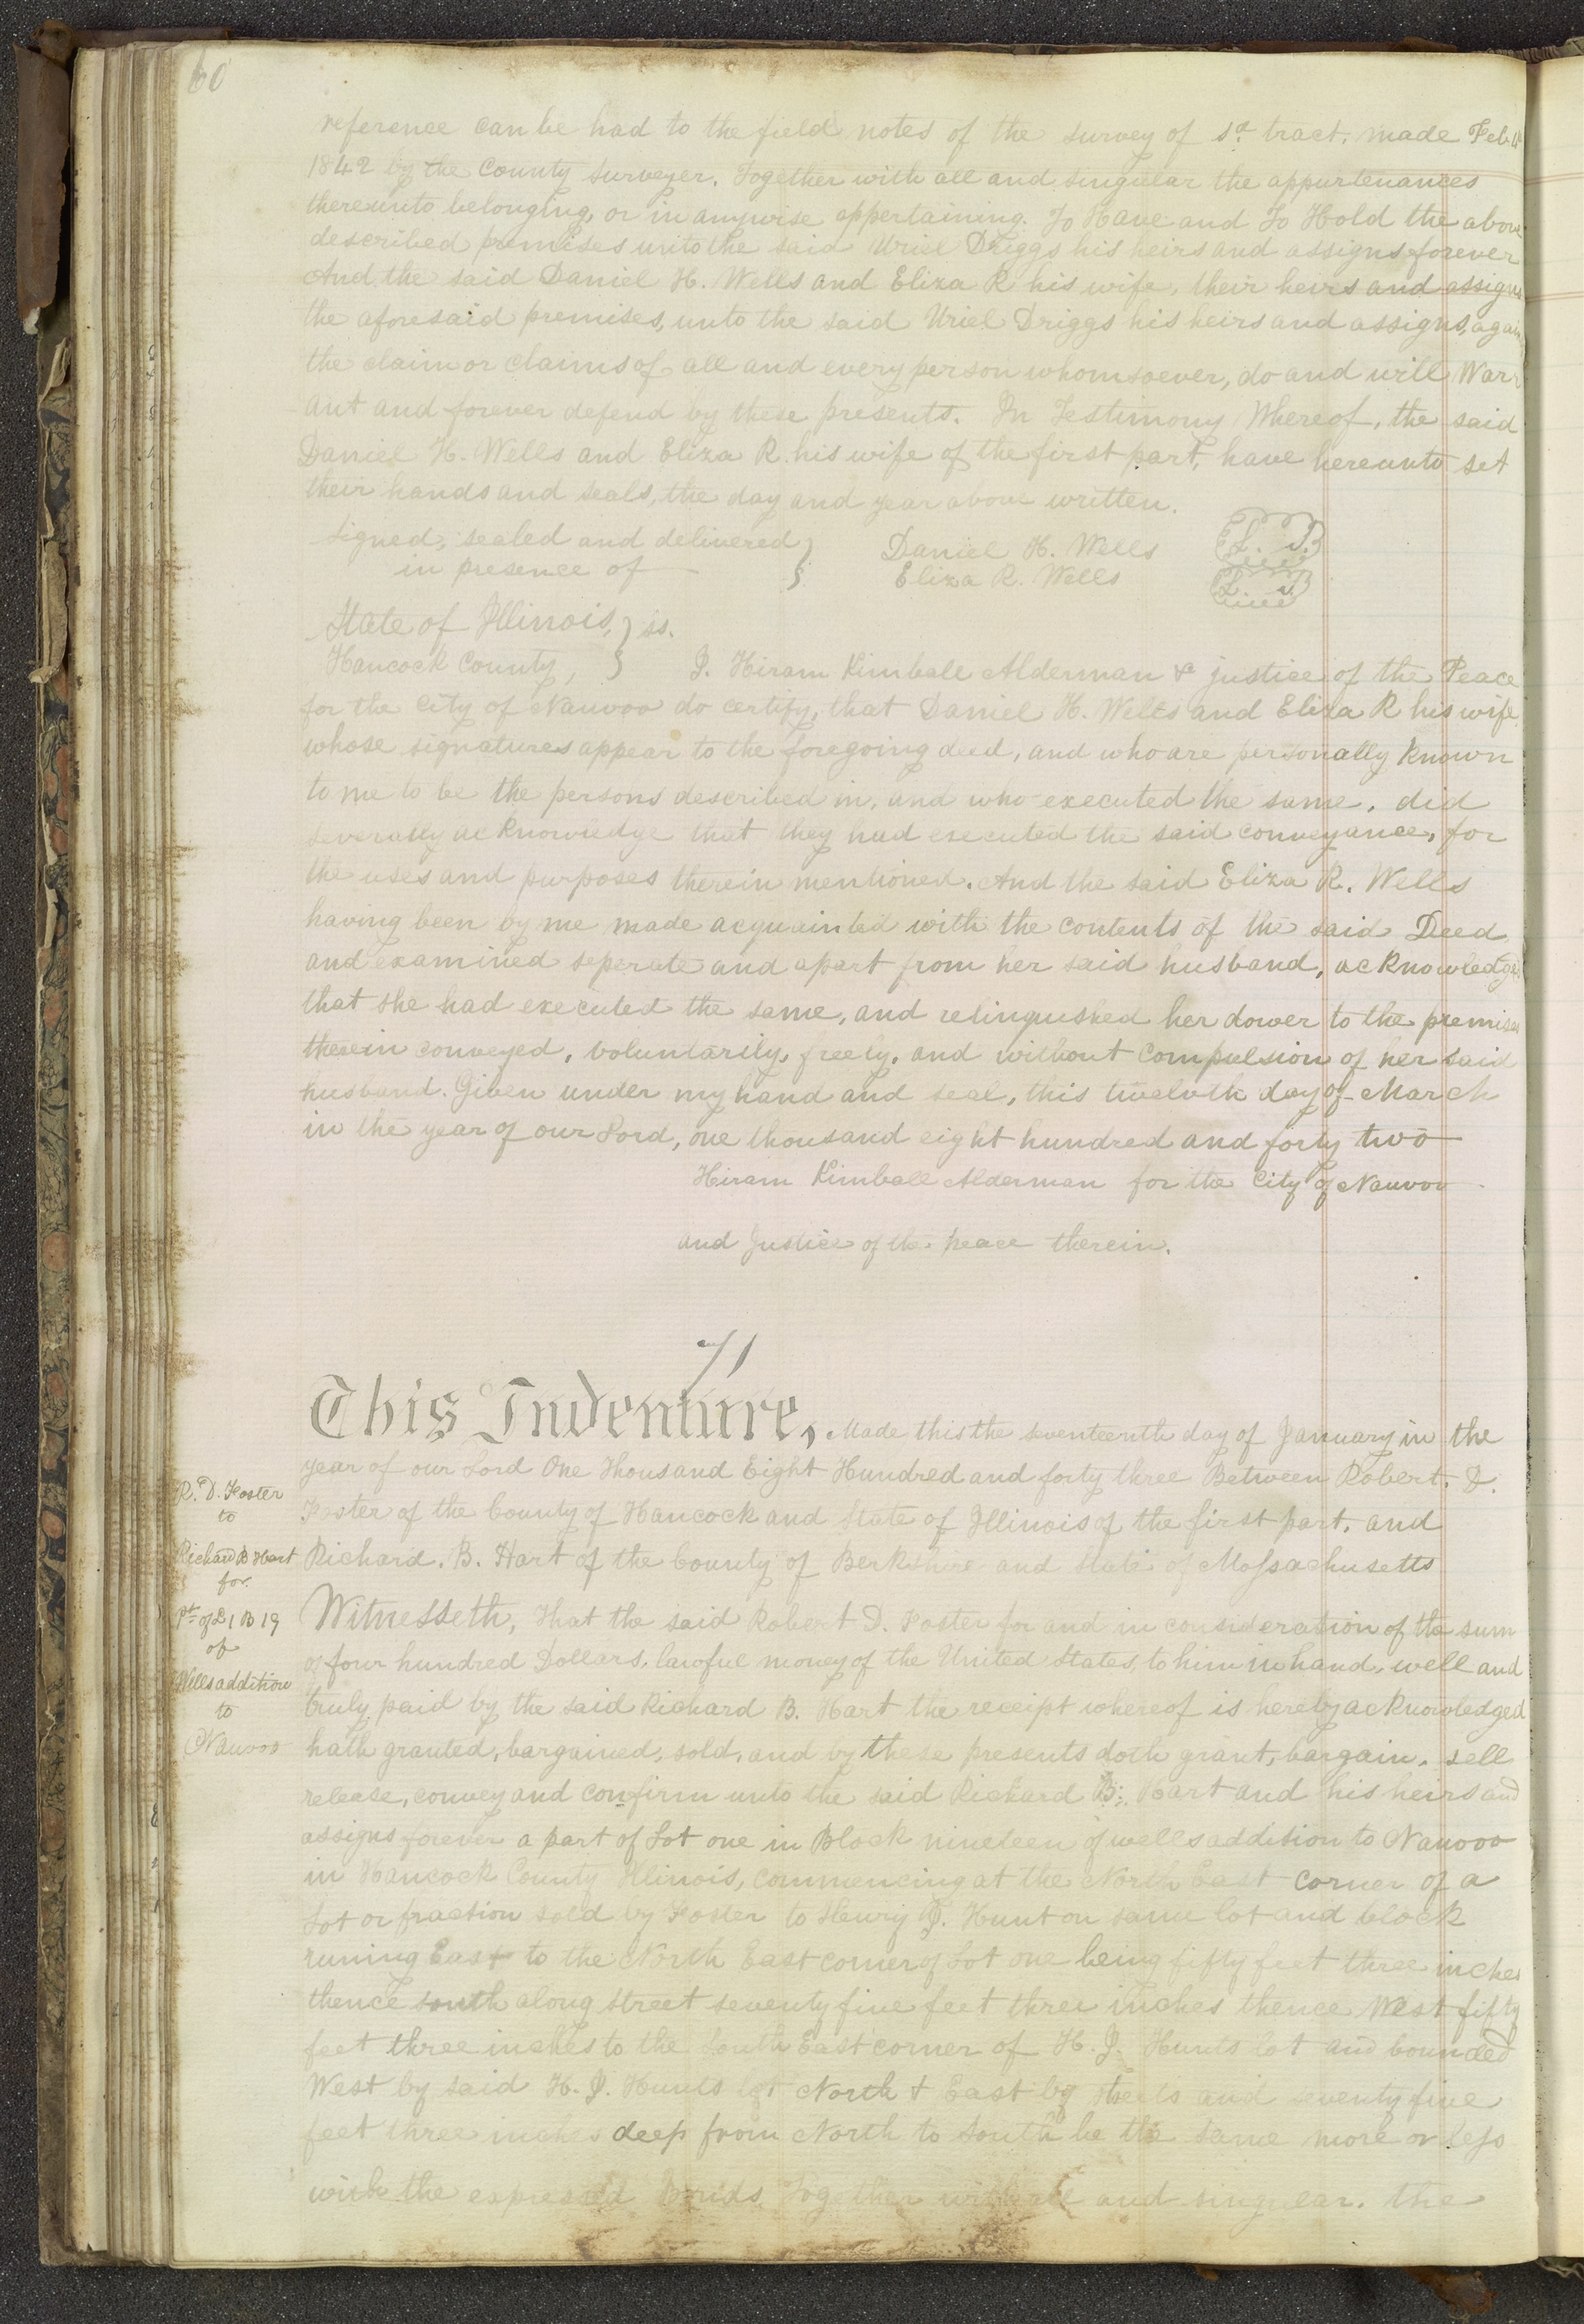 60
reference can be had to the field notes of the survey of sd tract, made Feb.
1842 by the County surveyer. Together with all and singular the appurtenances
thereunto belonging, or in anywise appertaining. To Have and To Hold the above
described premises unto the said Uriel Driggs his heirs and assigns forever
And the said Daniel H. Wells and Eliza R his wife, their heirs and assigns
the aforesaid premises, unto the said Uriel Driggs his heirs and assigns, again
the claim or claims of all and every person whomsoever, do and will Warr
ant and forever defend by these presents. In Testimony Whereof, the said
Daniel H. Wells and Eliza R. his wife of the first part, have hereunto set
their hands and seals, the day and year above written.
Signed, sealed and delivered } Daniel H. Wells L. S.
in presence of } Eliza R. Wells L. S.
State of Illinois, } ss.
Hancock County, } I. Hiram Kimball Alderman & justice of the Peace
for the City of Nauvoo do certify, that Daniel H. Wells and Eliza R his wife
whose signatures appear to the foregoing deed, and who are personally known
to me to be the persons described in, and who executed the same, did
severally acknowledge that they had executed the said conveyance, for
the uses and purposes therein mentioned. And the said Eliza R. Wells
having been by me made acquainted with the contents of the said Deed
and examined seperate and apart from her said husband, acknowledges
that she had executed the same, and relinqushed her dower to the premises
therein conveyed, voluntarily, freely, and without compulsion of her said
husband. Given under my hand and seal, this twelvth day of March
in the year of our Lord, one thousand eight hundred and forty two
Hiram Kimball Alderman for the City of Nauvoo
and Justice of the peace therein.
71
This Indenture, Made this the seventeenth day of January in the
year of our Lord One Thousand Eight Hundred and forty three Between Robert. D.
Foster of the County of Hancock and State of Illinois of the first part, and
Richard. B. Hart of the County of Berkshire and State of Massachusetts
R. D. Foster
to
Richard B Hart
for
Pt of L 1 B 19
of
Wells addition
to
Nauvoo
Witnesseth, That the said Robert D. Foster for and in consideration of the sum
of four hundred Dollars, lawful money of the United States, to him in hand, well and
truly paid by the said Richard B. Hart the receipt whereof is hereby acknowledged
hath granted, bargained, sold, and by these presents doth grant, bargain, sell
release, convey and confirm unto the said Richard B. Hart and his heirs and
assigns forever a part of Lot one in Block nineteen of wells addition to Nauvoo
in Hancock County Illinois, commencing at the North East corner of a
Lot or fraction sold by Foster to Henry J. Hunt on same lot and block
runing East to the North East corner of Lot one being fifty feet three inches
thence south along street seventy five feet three inches thence West fifty
feet three inches to the South East corner of H. J. Hunts lot and bounded
West by said H. J. Hunts lot North & East by streets and seventy five
feet three inches deep from North to South be the same more or less
with the expressed bonds Together with all and singular. the